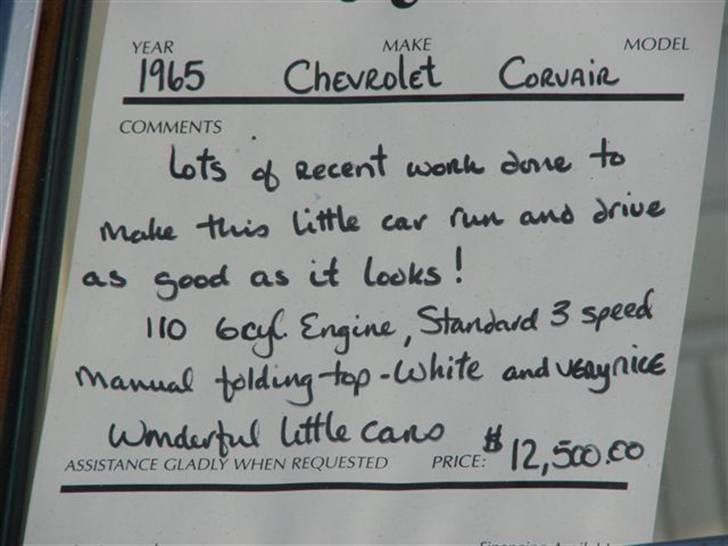 YEAR MAKE MODEL
1965 Chevrolet Corvair
COMMENTS
Lots of Recent work done to
Make this little car run and drive
as good as it looks!
110 6cyl. Engine, Standard 3 speed
Manual folding top - White and very nice
Wonderful little cars $12,500.00
ASSISTANCE GLADLY WHEN REQUESTED PRICE: